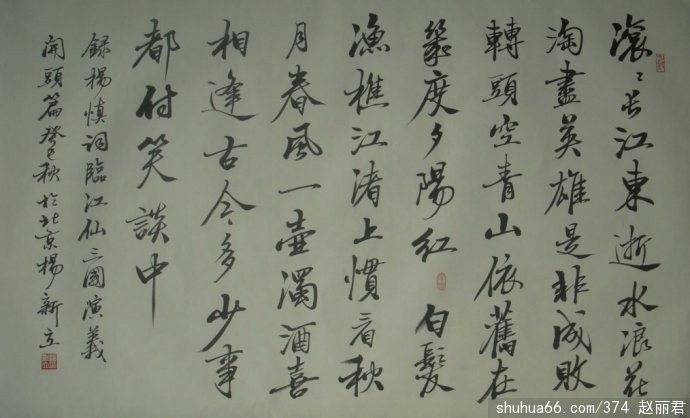 滾〻長江東逝水浪花
淘盡英雄是非成敗
轉頭空青山依舊在
幾度夕陽紅 白髮
漁樵江渚上慣看秋
月春風一壺濁酒喜
相逢古今多少事
都付笑談中
録楊慎詞臨江仙三國演義
開頭篇癸巳秋於北京楊新立
shuhua66.com/374 赵丽君